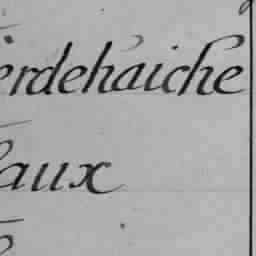 erdehaiche
aux